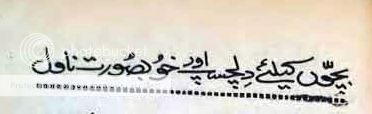 بچّوں کیلئے دِلچسپ اور خوبصُورت ناول